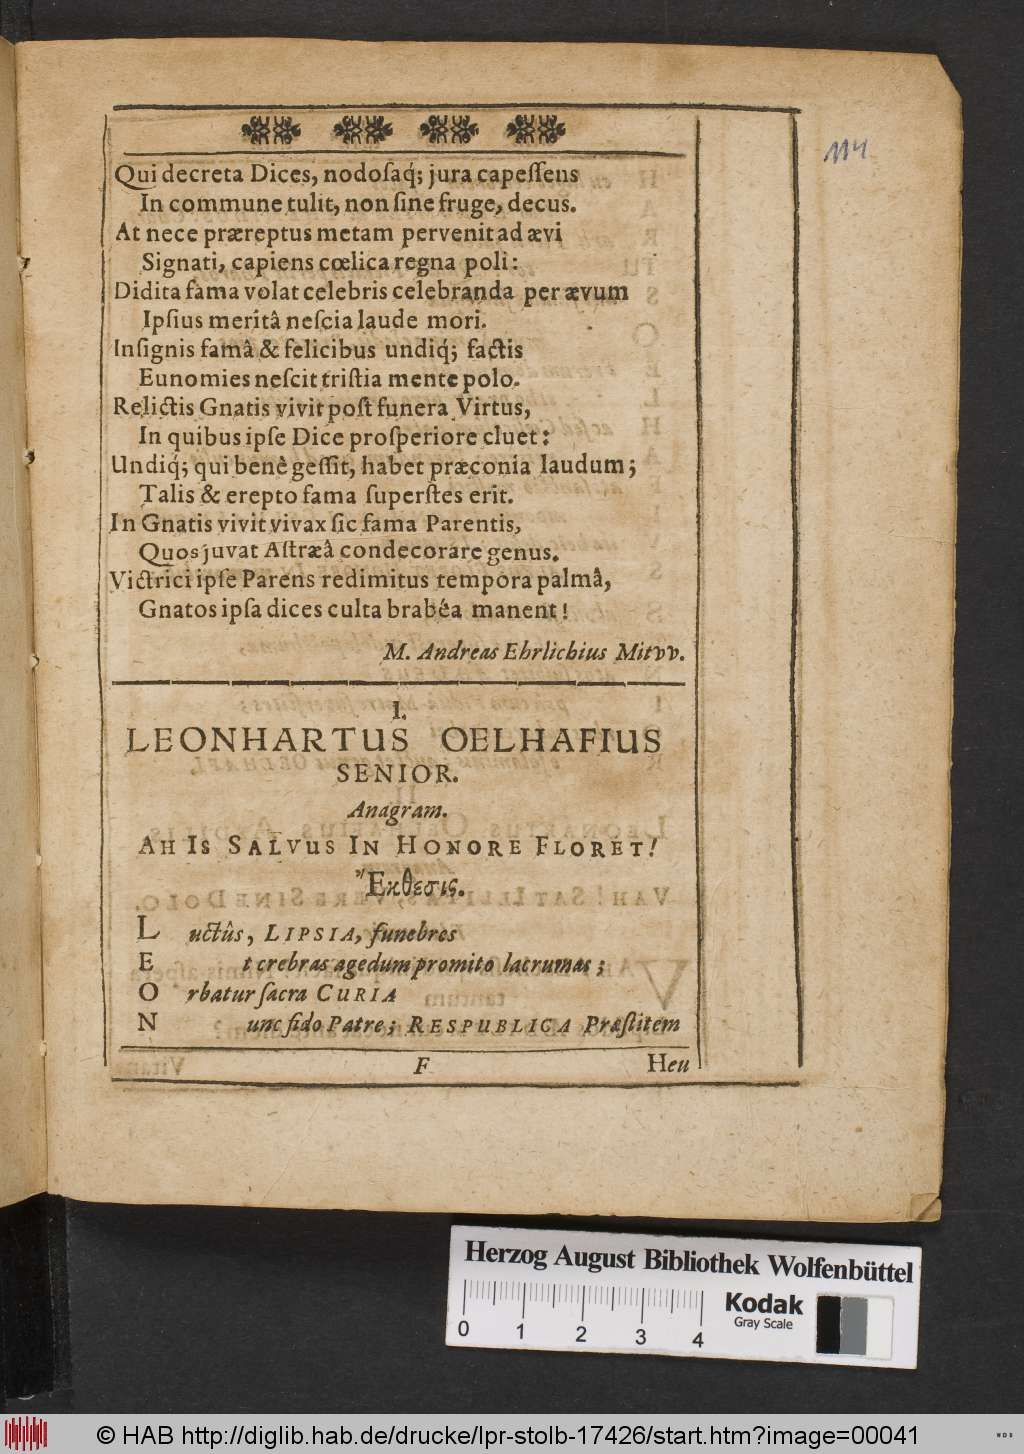 114
Qui decreta Dices, nodoſaq́; jura capeſſens
In commune tulit, non ſine fruge, decus.
At nece præreptus metam pervenit ad ævi
Signati, capiens cœlica regna poli:
Didita fama volat celebris celebranda per ævum
Ipſius meritâ neſcia laude mori.
Inſignis famâ & felicibus undiq́; factis
Eunomies neſcit triſtia mente polo.
Relictis Gnatis vivit poſt funera Virtus,
In quibus ipſe Dice proſperiore cluet:
Undiq́; qui benè geſſit, habet præconia laudum;
Talis & erepto fama ſuperſtes erit.
In Gnatis vivit vivax ſic fama Parentis,
Quos juvat Aſtræâ condecorare genus.
Victrici ipſe Parens redimitus tempora palmâ,
Gnatos ipſa dices culta brabéa manent!
M. Andreas Ehrlichius Mitvv.
I.
LEONHARTUS OELHAFIUS
SENIOR.
Anagram.
AH IS SALVUS IN HONORE FLORET!
Ἔκθεσις.
L uctûs, LIPSIA, funebres
E t crebras agedum promito lacrumas;
O rbatur ſacra CURIA
N unc fido Patre; RESPUBLICA Præſtitem
F Heu
Herzog August Bibliothek Wolfenbüttel
Kodak
Gray Scale
0 1 2 3 4
© HAB http://diglib.hab.de/drucke/lpr-stolb-17426/start.htm?image=00041
WDB